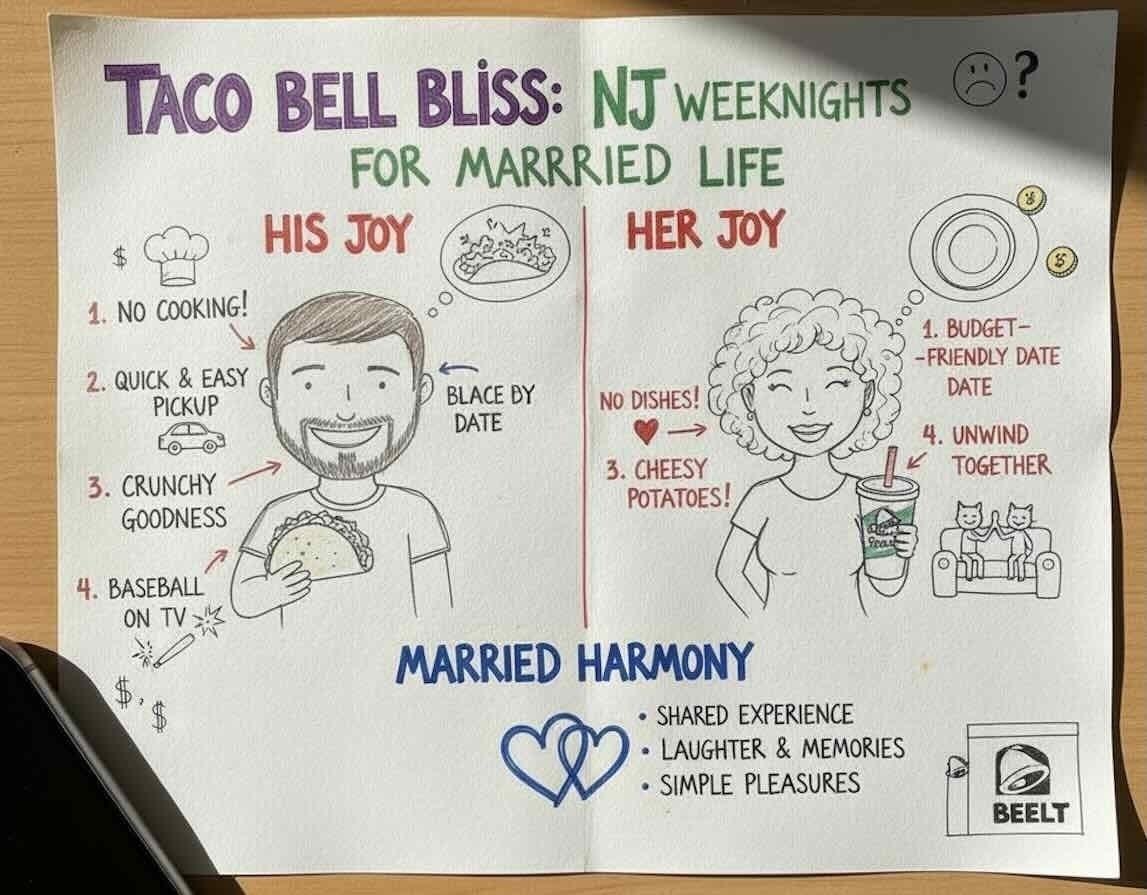 TACO BELL BLISS: NJ WEEKNIGHTS
?
FOR MARRRIED LIFE
HIS JOY
$
1. NO COOKING!
2. QUICK & EASY
PICKUP
3. CRUNCHY
GOODNESS
4. BASEBALL
ON TV
$, $
BLACE BY
DATE
HER JOY
NO DISHES!
3. CHEESY
POTATOES!
1. BUDGET-
-FRIENDLY DATE
DATE
4. UNWIND
TOGETHER
MARRIED HARMONY
• SHARED EXPERIENCE
• LAUGHTER & MEMORIES
• SIMPLE PLEASURES
BEELT